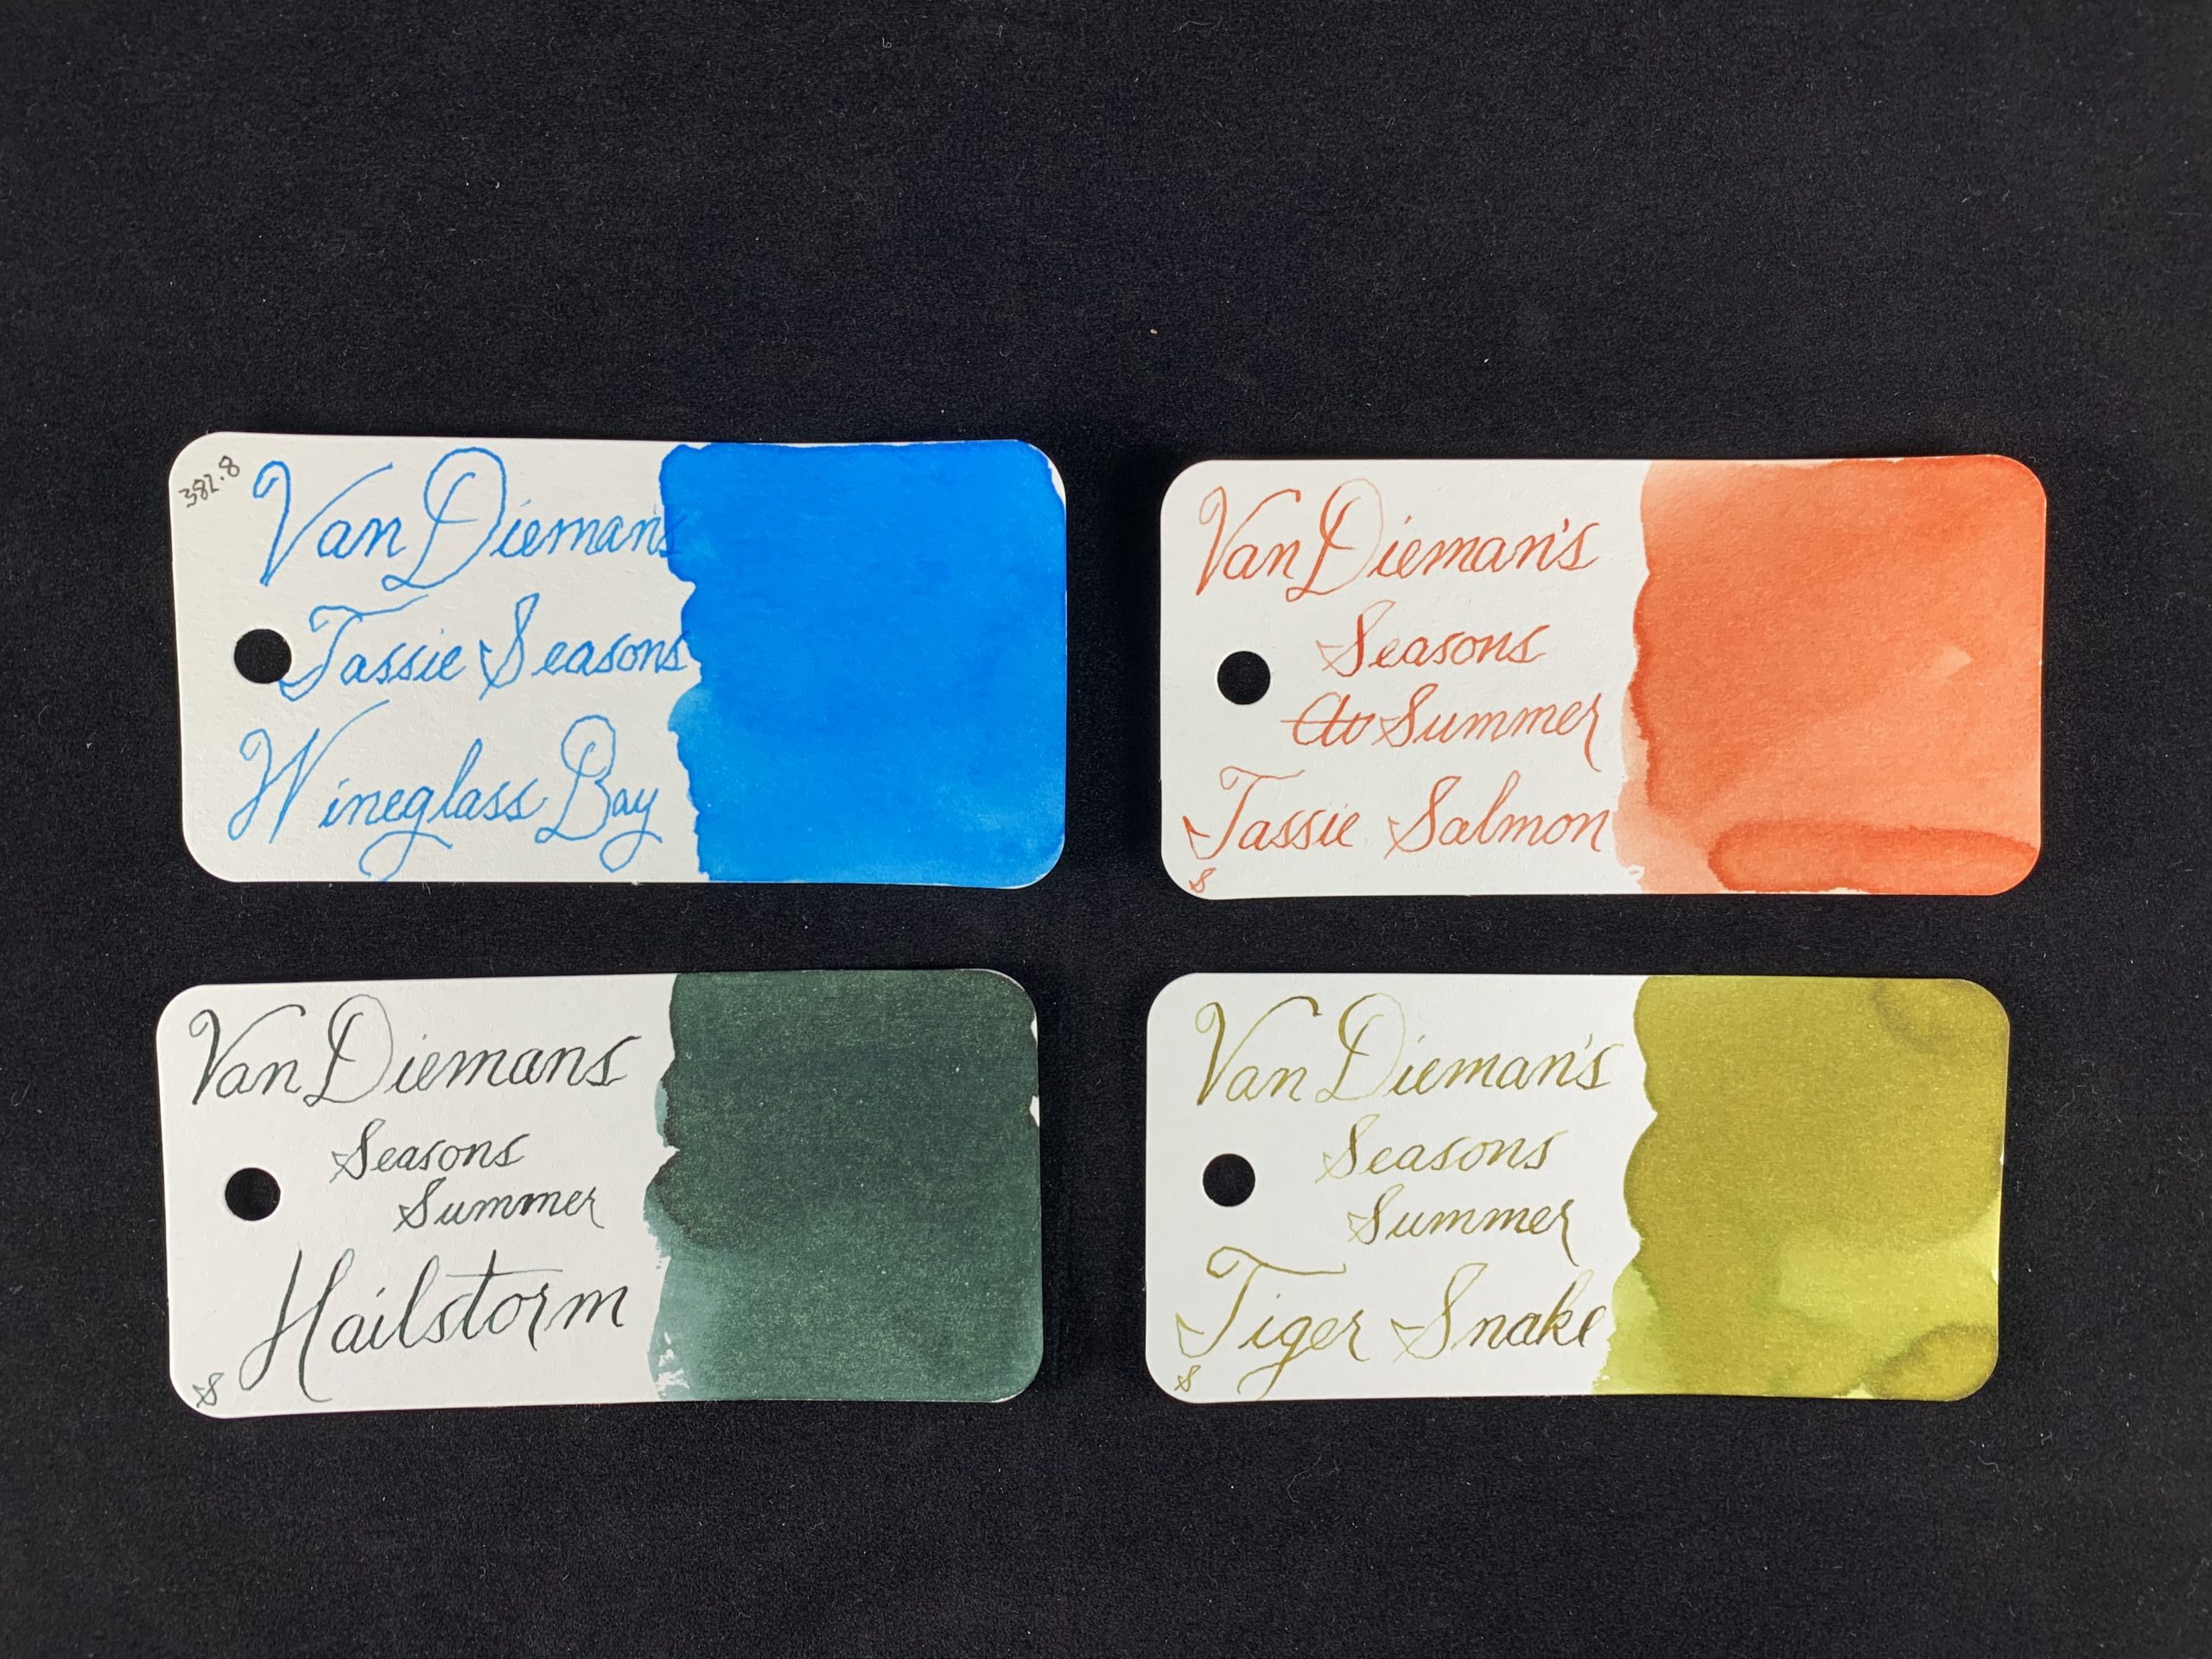 382.8
Van Dieman's
Tassie Seasons
Wineglass Bay
Van Dieman's
Seasons
Au Summer
Tassie Salmon
S
Van Diemans
Seasons
Summer
Hailstorm
S
Van Dieman's
Seasons
Summer
Tiger Snake
S